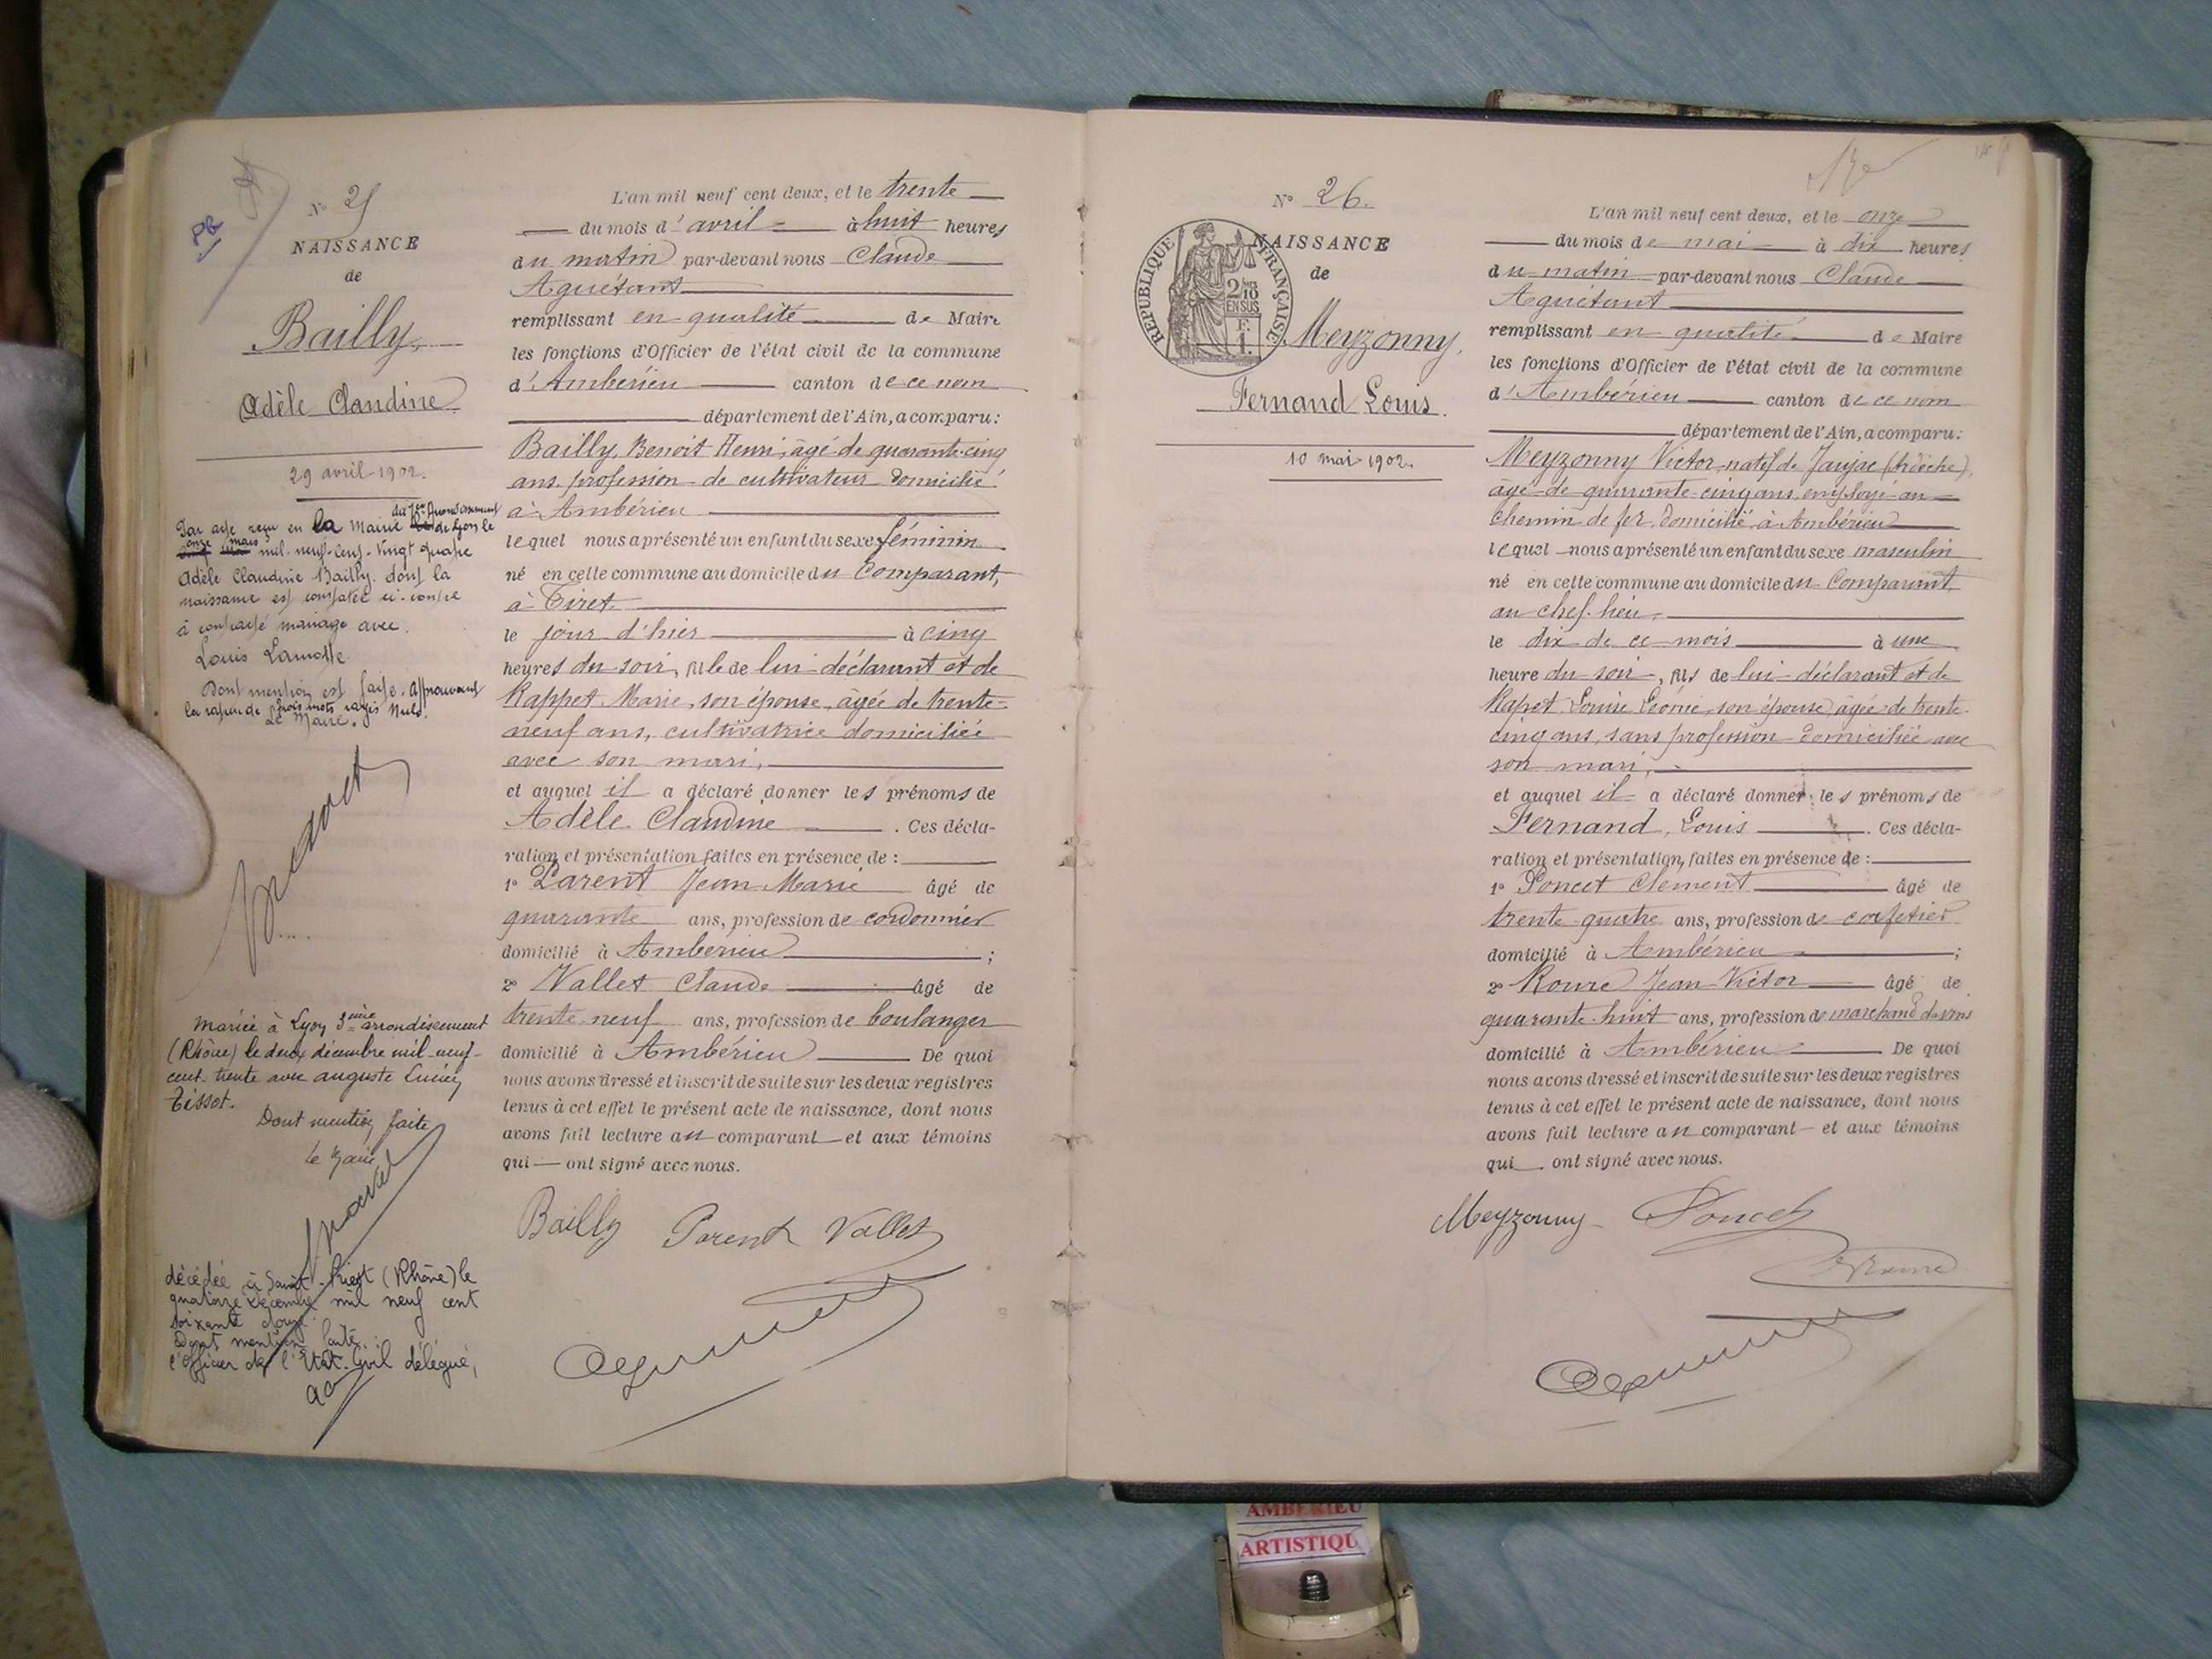 N° 25
NAISSANCE
de
Bailly,
Adèle Claudine
29 avril 1902.
du 7e arrondissement
Par acte reçu en la Mairie de Lyon le
onze mars mil-neuf-cent-vingt quatre
Adèle Claudine Bailly dont la
naissance est constatée ci-contre
à contracté mariage avec
Louis Lamotte
Dont mention est faite. Approuvant
la rature de trois mots rayés nuls.
Le Maire.
Mariée à Lyon 3ème arrondissement
(Rhône) le deux décembre mil-neuf-
cent-trente avec Auguste Lucien
Tissot.
Dont mention faite
le Maire
décédée à Saint-Priest (Rhône) le
quatorze décembre mil neuf cent
soixante douze.
Dont mention faite.
l'Officier de l'Etat-Civil délégué,
L'an mil neuf cent deux, et le trente
du mois d'avril à huit heures
du matin par-devant nous Claude
Aguétant
remplissant en qualité de Maire
les fonctions d'Officier de l'état civil de la commune
d'Ambérieu canton de ce nom
département de l'Ain, a comparu:
Bailly, Benoit Henri, âgé de quarante-cinq
ans, profession de cultivateur domicilié
à Ambérieu
lequel nous a présenté un enfant du sexe féminin
né en cette commune au domicile du Comparant,
à Tiret
le jour d'hier à cinq
heures du soir, fille de lui déclarant et de
Rappet Marie, son épouse, âgée de trente-
neuf ans, cultivatrice domiciliée
avec son mari,
et auquel il a déclaré donner les prénoms de
Adèle Claudine. Ces décla-
ration et présentation faites en présence de :
1° Parent Jean Marie âgé de
quarante ans, profession de cordonnier
domicilié à Ambérieu ;
2° Vallet Claude âgé de
trente-neuf ans, profession de boulanger
domicilié à Ambérieu De quoi
nous avons dressé et inscrit de suite sur les deux registres
tenus à cet effet le présent acte de naissance, dont nous
avons fait lecture au comparant et aux témoins
qui ont signé avec nous.
Bailly Parent Vallet
N° 26.
RÉPUBLIQUE FRANÇAISE
NAISSANCE
de
Meyzonny,
Fernand Louis.
10 mai 1902.
L'an mil neuf cent deux, et le onze
du mois de mai à dix heures
du matin par-devant nous Claude
Aguétant
remplissant en qualité de Maire
les fonctions d'Officier de l'état civil de la commune
d'Ambérieu canton de ce nom
département de l'Ain, a comparu:
Meyzonny Victor, natif de Jaujac (Ardèche),
âgé de quarante-cinq ans, employé au
chemin de fer, domicilié à Ambérieu
lequel nous a présenté un enfant du sexe masculin
né en cette commune au domicile du Comparant
au chef-lieu,
le dix de ce mois à une
heure du soir, fils de lui déclarant et de
Rapet Louise Léonie, son épouse, âgée de trente-
cinq ans, sans profession domiciliée avec
son mari,
et auquel il a déclaré donner les prénoms de
Fernand, Louis. Ces décla-
ration et présentation faites en présence de :
1° Poncet Clément âgé de
trente-quatre ans, profession de cafetier
domicilié à Ambérieu ;
2° Roure Jean Victor âgé de
quarante-huit ans, profession de marchand de vins
domicilié à Ambérieu De quoi
nous avons dressé et inscrit de suite sur les deux registres
tenus à cet effet le présent acte de naissance, dont nous
avons fait lecture au comparant et aux témoins
qui ont signé avec nous.
Meyzonny Poncet
Roure
AMBERIEU
ARTISTIQU